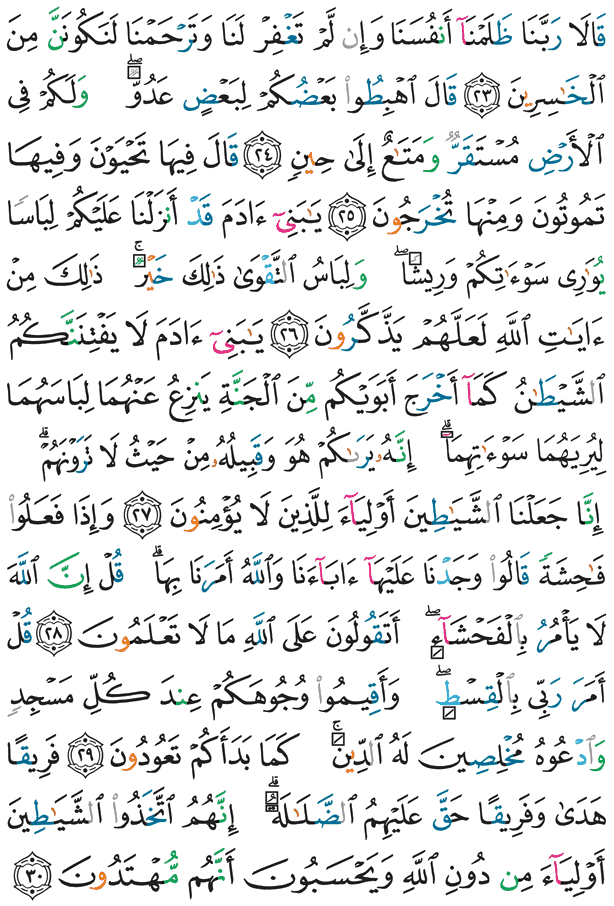 قَالَا رَبَّنَا ظَلَمۡنَآ أَنفُسَنَا وَإِن لَّمۡ تَغۡفِرۡ لَنَا وَتَرۡحَمۡنَا لَنَكُونَنَّ مِنَ
ٱلۡخَٰسِرِينَ ٢٣ قَالَ ٱهۡبِطُواْ بَعۡضُكُمۡ لِبَعۡضٍ عَدُوّٞۖ وَلَكُمۡ فِي
ٱلۡأَرۡضِ مُسۡتَقَرّٞ وَمَتَٰعٌ إِلَىٰ حِينٖ ٢٤ قَالَ فِيهَا تَحۡيَوۡنَ وَفِيهَا
تَمُوتُونَ وَمِنۡهَا تُخۡرَجُونَ ٢٥ يَٰبَنِيٓ ءَادَمَ قَدۡ أَنزَلۡنَا عَلَيۡكُمۡ لِبَاسٗا
يُوَٰرِي سَوۡءَٰتِكُمۡ وَرِيشٗاۖ وَلِبَاسُ ٱلتَّقۡوَىٰ ذَٰلِكَ خَيۡرٞۚ ذَٰلِكَ مِنۡ
ءَايَٰتِ ٱللَّهِ لَعَلَّهُمۡ يَذَّكَّرُونَ ٢٦ يَٰبَنِيٓ ءَادَمَ لَا يَفۡتِنَنَّكُمُ
ٱلشَّيۡطَٰنُ كَمَآ أَخۡرَجَ أَبَوَيۡكُم مِّنَ ٱلۡجَنَّةِ يَنزِعُ عَنۡهُمَا لِبَاسَهُمَا
لِيُرِيَهُمَا سَوۡءَٰتِهِمَآۗ إِنَّهُۥ يَرَىٰكُمۡ هُوَ وَقَبِيلُهُۥ مِنۡ حَيۡثُ لَا تَرَوۡنَهُمۡۗ
إِنَّا جَعَلۡنَا ٱلشَّيَٰطِينَ أَوۡلِيَآءَ لِلَّذِينَ لَا يُؤۡمِنُونَ ٢٧ وَإِذَا فَعَلُواْ
فَٰحِشَةٗ قَالُواْ وَجَدۡنَا عَلَيۡهَآ ءَابَآءَنَا وَٱللَّهُ أَمَرَنَا بِهَاۗ قُلۡ إِنَّ ٱللَّهَ
لَا يَأۡمُرُ بِٱلۡفَحۡشَآءِۖ أَتَقُولُونَ عَلَى ٱللَّهِ مَا لَا تَعۡلَمُونَ ٢٨ قُلۡ
أَمَرَ رَبِّي بِٱلۡقِسۡطِۖ وَأَقِيمُواْ وُجُوهَكُمۡ عِندَ كُلِّ مَسۡجِدٖ
وَٱدۡعُوهُ مُخۡلِصِينَ لَهُ ٱلدِّينَۚ كَمَا بَدَأَكُمۡ تَعُودُونَ ٢٩ فَرِيقًا
هَدَىٰ وَفَرِيقًا حَقَّ عَلَيۡهِمُ ٱلضَّلَٰلَةُۗ إِنَّهُمُ ٱتَّخَذُواْ ٱلشَّيَٰطِينَ
أَوۡلِيَآءَ مِن دُونِ ٱللَّهِ وَيَحۡسَبُونَ أَنَّهُم مُّهۡتَدُونَ ٣٠